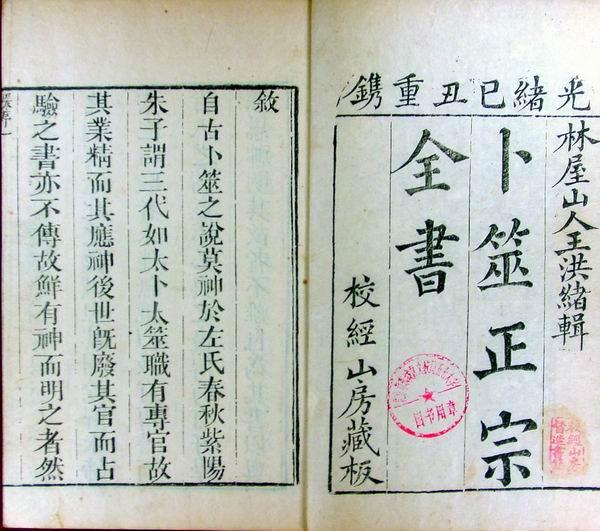 光緒己丑重鐫
林屋山人王洪緒輯
卜筮正宗
全書
校經山房藏板
圖书用章
敘
自古卜筮之說莫神於左氏春秋紫陽
朱子謂三代如太卜太筮職有專官故
其業精而其應神後世旣廢其官而占
驗之書亦不傳故鮮有神而明之者然